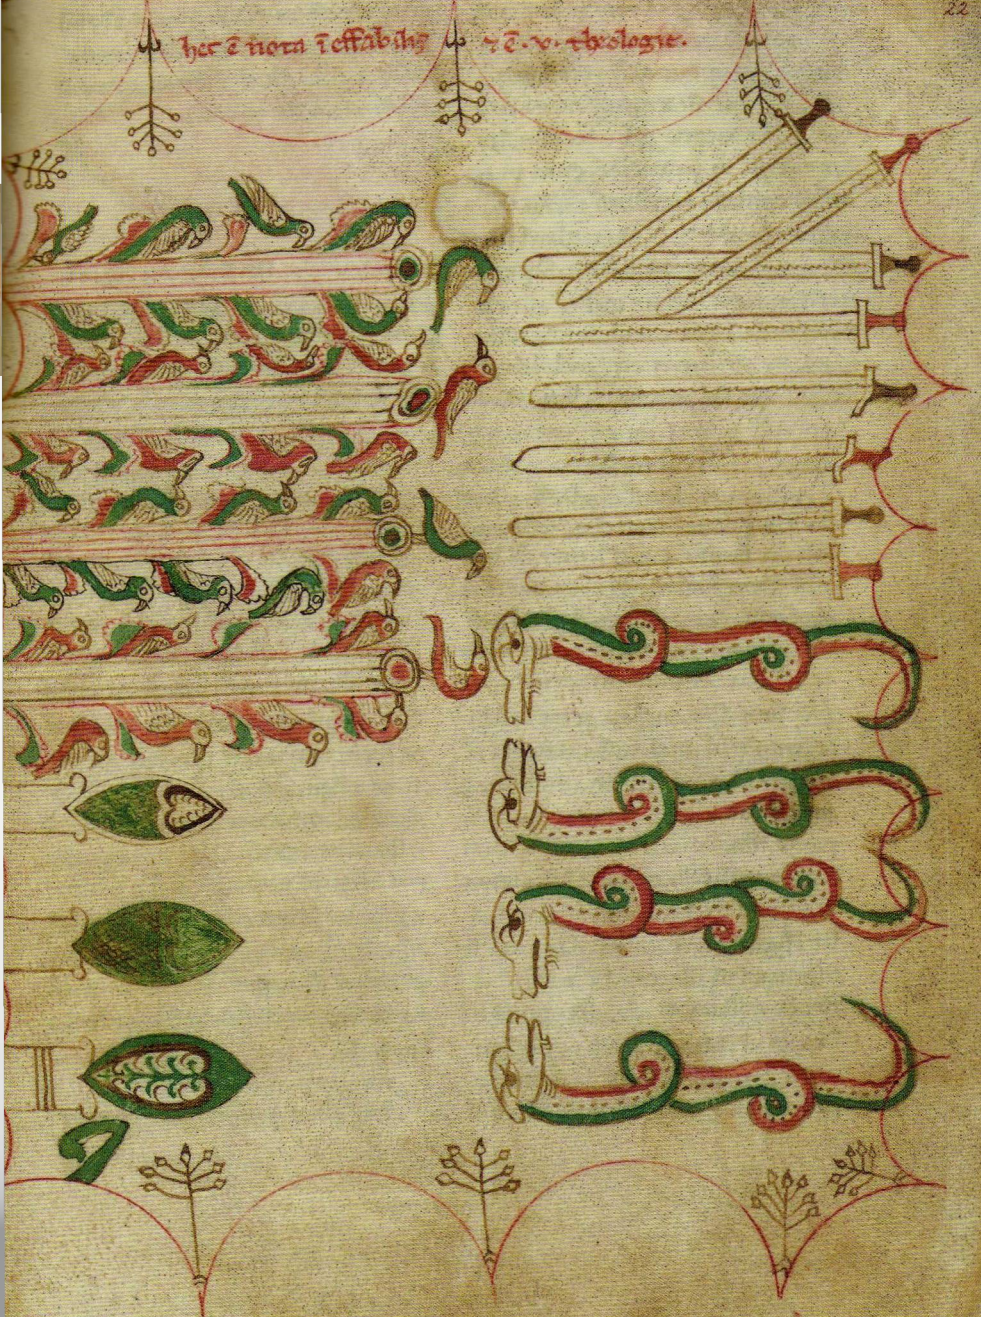 22
hec ē nota ī effabilis 7 ē · v · theologie ·